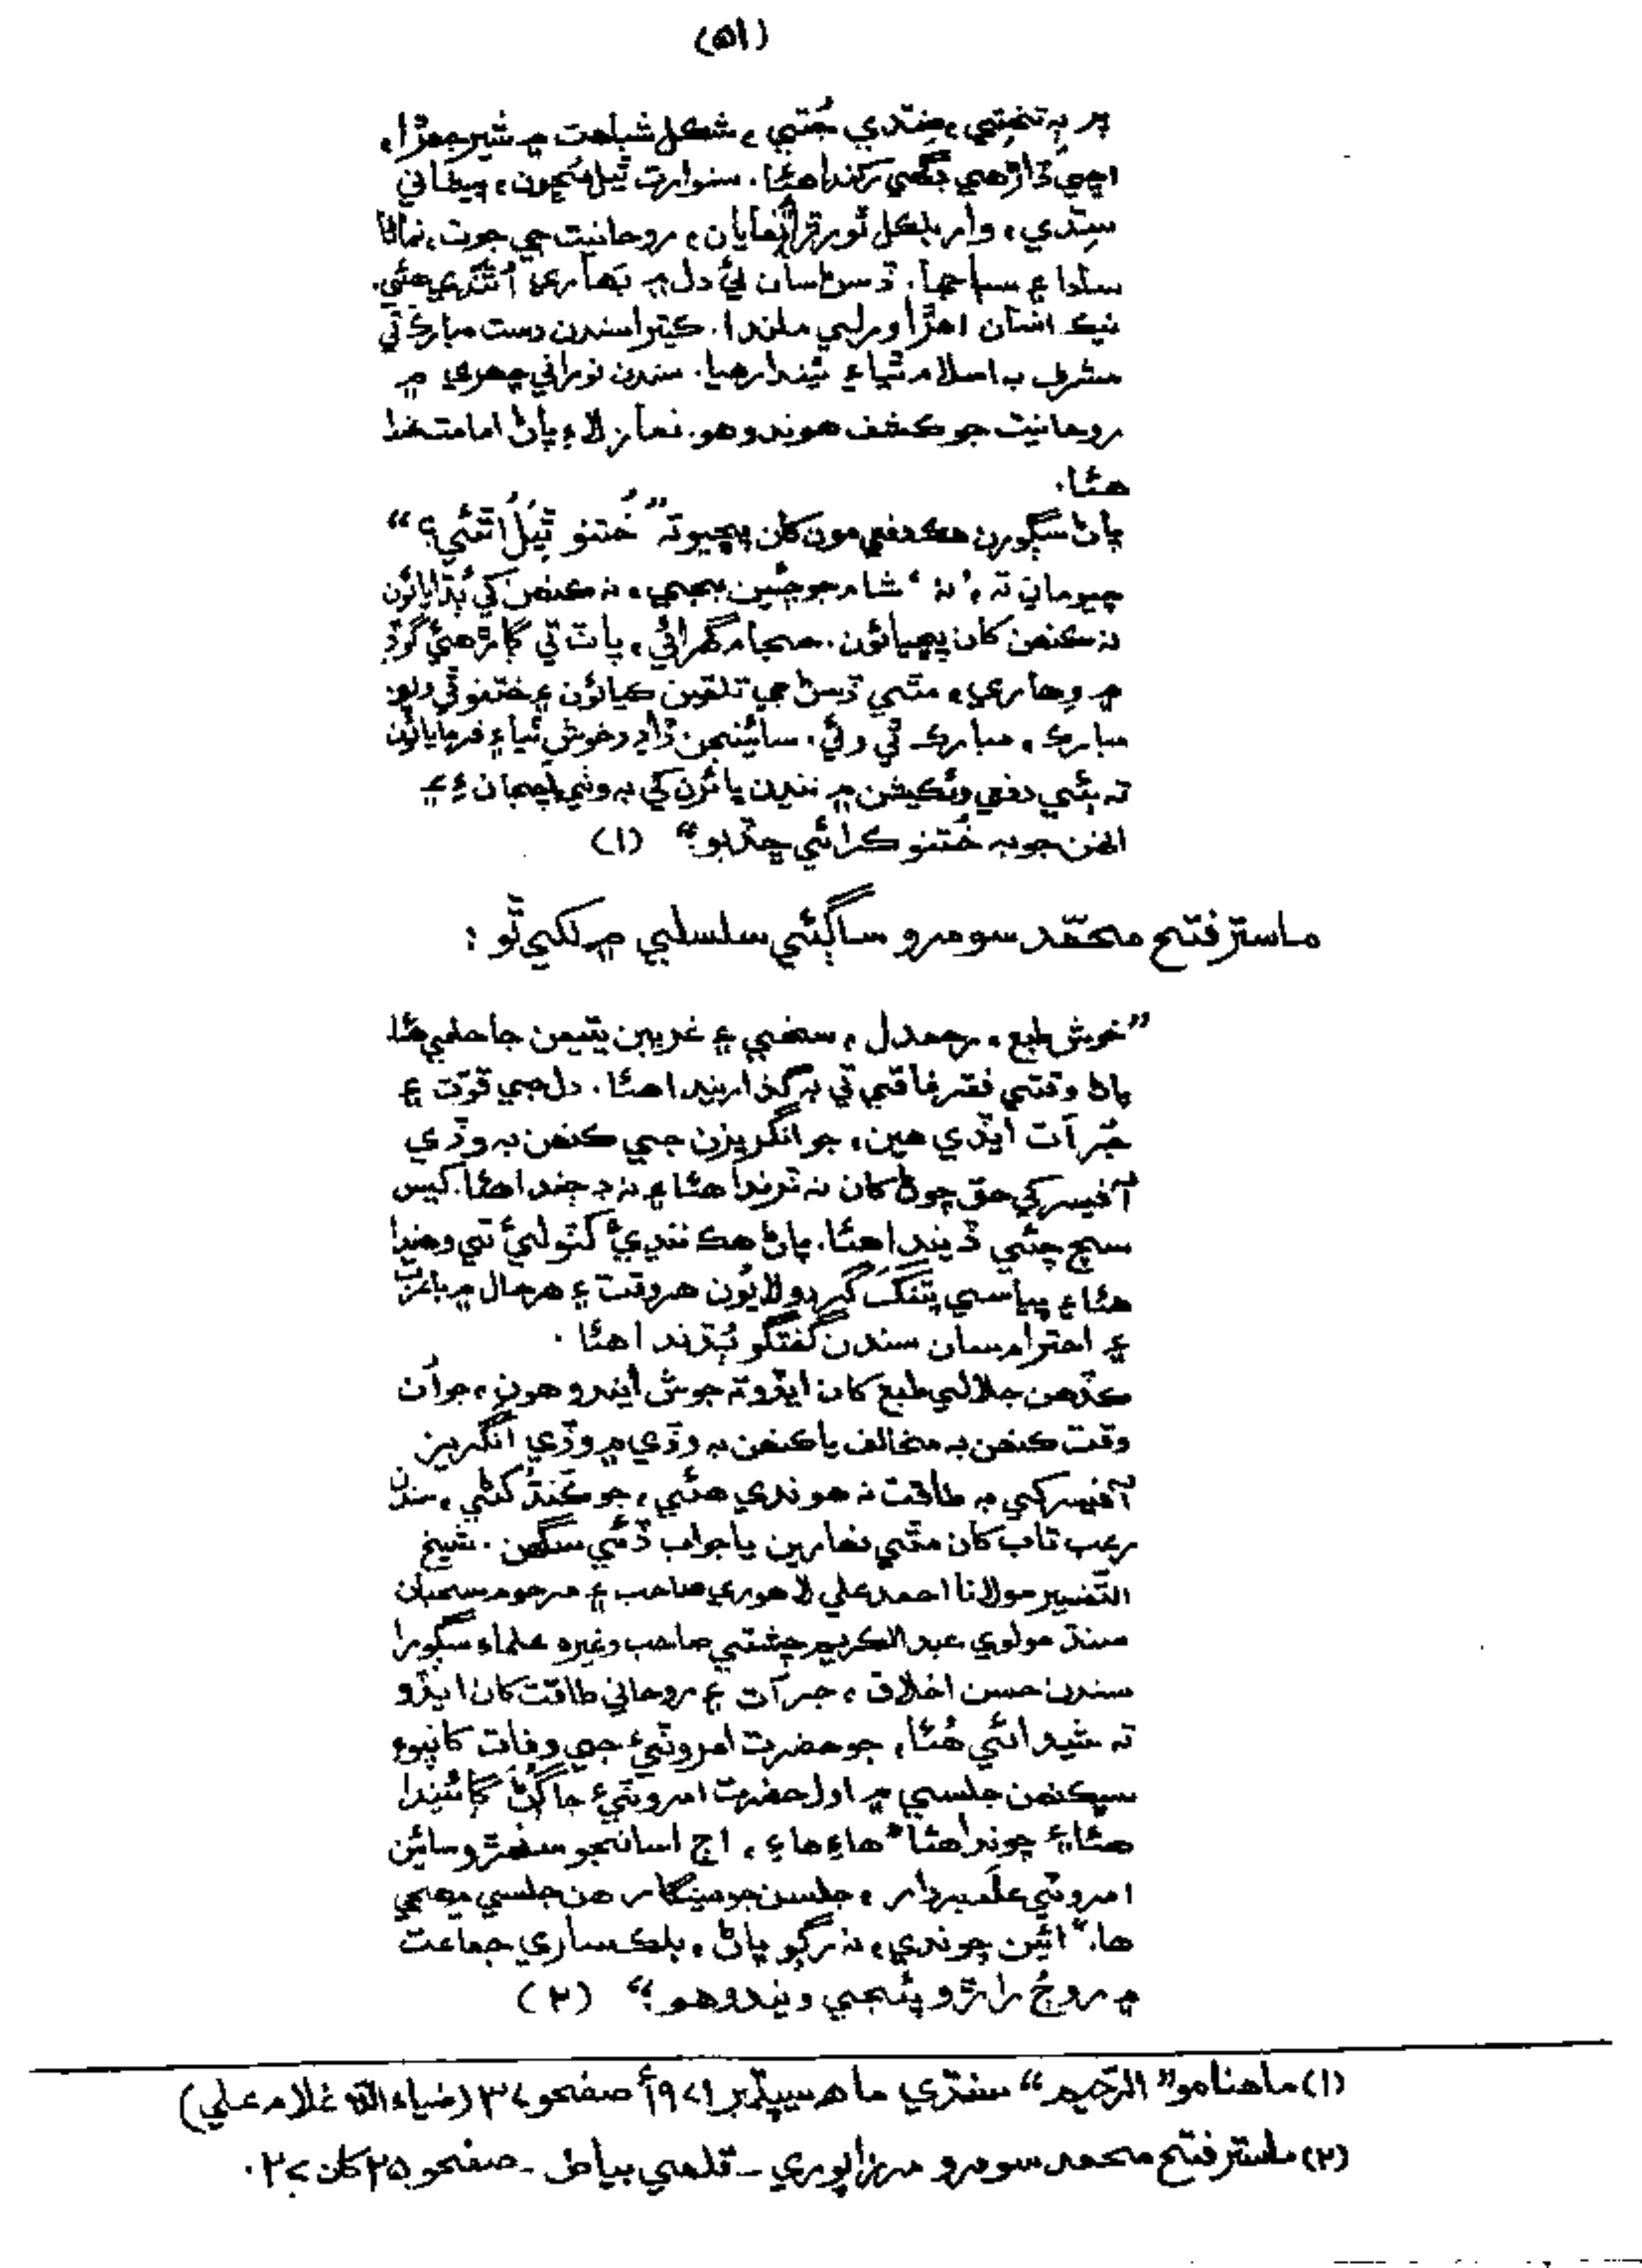 (۵۱)
پر به تختي، سنڌي جُتي، شڪل شباهت ۾ شير جهڙا،
اڇي ڏاڙهي ڊگهي رکندا هئا. سنوارت ٿيل مُڇون، پيشاني
سِڌي، وار بلڪل ٿورڙا نمايان، روحانيت جي جوت، نماڻا
سادا ۽ سٻاجها. ڏسڻ سان ئي دل ۾ ٺهاري
نيڪ انسان اهڙا ورلي ملندا. ڪيترا سندن دست مبارڪ تي
مشرف به اسلام ٿيا ۽ ٿيندا رهيا. سندن نوراني چهري ۾
روحانيت جو ڪشف هوندو هو. نماز لاءِ پاڻ امامت ڪندا
هئا.
پاڻ سڳورن هڪ دفعي مون کان پڇيو ته ”خُتنو ٿيلُ اٿئي؟“
چيومانِ ته، ’نه‘ شام جو جيئن ٿي، نه ڪنهن کي ٻُڌايائون
نه ڪنهن کان پڇيائون. حجام گهرائي، پاٽ تي ڳاڙهي گوڏ
۾ وهاري، مٿي ڏسڻ جي تلقين ڪيائون ۽ ختنو ٿي ويو.
مبارڪ، مبارڪ ٿي وئي. سائينجن ڏاڍو خوش ٿيا ۽ فرمايائون
ته ٻئي دفعي وئڪيشن ۾ ننڍن ڀائرن کي به وٺي اچجانءِ ۽
انهن جو به خُتنو ڪرائي ڇڏبو.“ (۱)
ماستر فتح محمّد سومرو ساڳئي سلسلي ۾ لکي ٿو :
”خوش طبع، رحمدل، سخي ۽ غريبن يتيمن جا حامي هئا
پاڻ وقتي فقر فاقي تي به گذاريندا هئا. دل جي قوّت ۽
جُرآت ايڏي هين، جو انگريزن جي ڪنهن به وڏي
آفيسر کي حق چوڻ کان نه ترندا هئا ۽ نه ڊڄندا هئا. کيس
سچ چئي ڏيندا هئا. پاڻ هڪ ننڍيءَ کٽوليءَ تي وهندا
هئا ۽ پياسي پتنگَ گردولايُون هروقت ۽ هرحال ۾ باعزت
۽ احترام سان سندن گفتگو ٻُڌندا هئا.
ڪڏهن جلالي طبع کان ايڏو ته جوش ايندو هون، جو اُن
وقت ڪنهن به مخالف يا ڪنهن به وڏي ۾ وڏي انگريز
آفيسر کي به طاقت نه هوندي هئي، جو ڪَنڌُ کڻي، سندن
رعب تاب کان مٿي نهارين يا جواب ڏئي سگهن. شيخ
التّفسير مولانا احمد علي لاهوري صاحب ۽ مرحوم سحبان
سنڌ مولوي عبدالڪريم چشتي صاحب وغيره علماءِ سڳورا
سندن حسن اخلاق، جرآت ۽ روحاني طاقت کان ايڏو
ته شيدائي هُئا، جو حضرت امروٽيءَ جي وفات کانپوءِ
سڀڪنهن جلسي ۾ اول حضرت امروٽيءَ جا ڳُڻ ڳائيندا
هئا ۽ چوندا هئا ”هاءِ هاءِ، اڄ اسانجو سهڻڙو سائين
امروٽي علَمبردار، جلسن جو سينگار، هن جلسي ۾ هجي
ها.“ ائين چوندي، نه رڳو پاڻ، بلڪ ساري جماعت
۾ روڄُ راڙو پئجي ويندو هو.“ (۲)
(۱) ماهنامو ”الرّحيم“ سنڌي ماه سيپٽمبر ۱۹۷۱ع صفحو ۳۷ (ضياءالله غلام علي)
(۲) ماستر فتح محمد سومرو مرزاپوري - قلمي بياض - صفحو ۲۵ کان ۲۷.